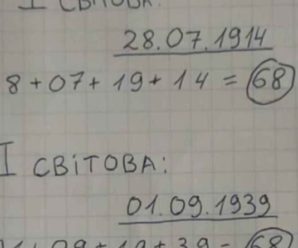 I СВІТОВА:
28.07.1914
8+07+19+14 = 68
I СВІТОВА:
01.09.1939
1+09+19+39 = 68